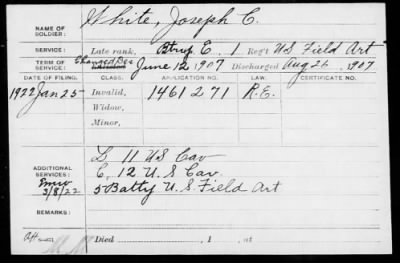 White, Joseph C.
NAME OF SOLDIER:
SERVICE: Late rank, Btry E, 1 Reg't U.S. Field Art
TERM OF SERVICE: Enlisted June 12, 1907 Discharged Aug 26, 1907
DATE OF FILING. CLASS. APPLICATION NO. LAW. CERTIFICATE NO.
1922 Jan 25 Invalid, 1461271 R.E.
Widow,
Minor,
L, 11 US Cav
ADDITIONAL SERVICES: C, 12 U.S Cav
5 Batty U.S. Field Art
3/8/22
REMARKS:
Died , 1 , at